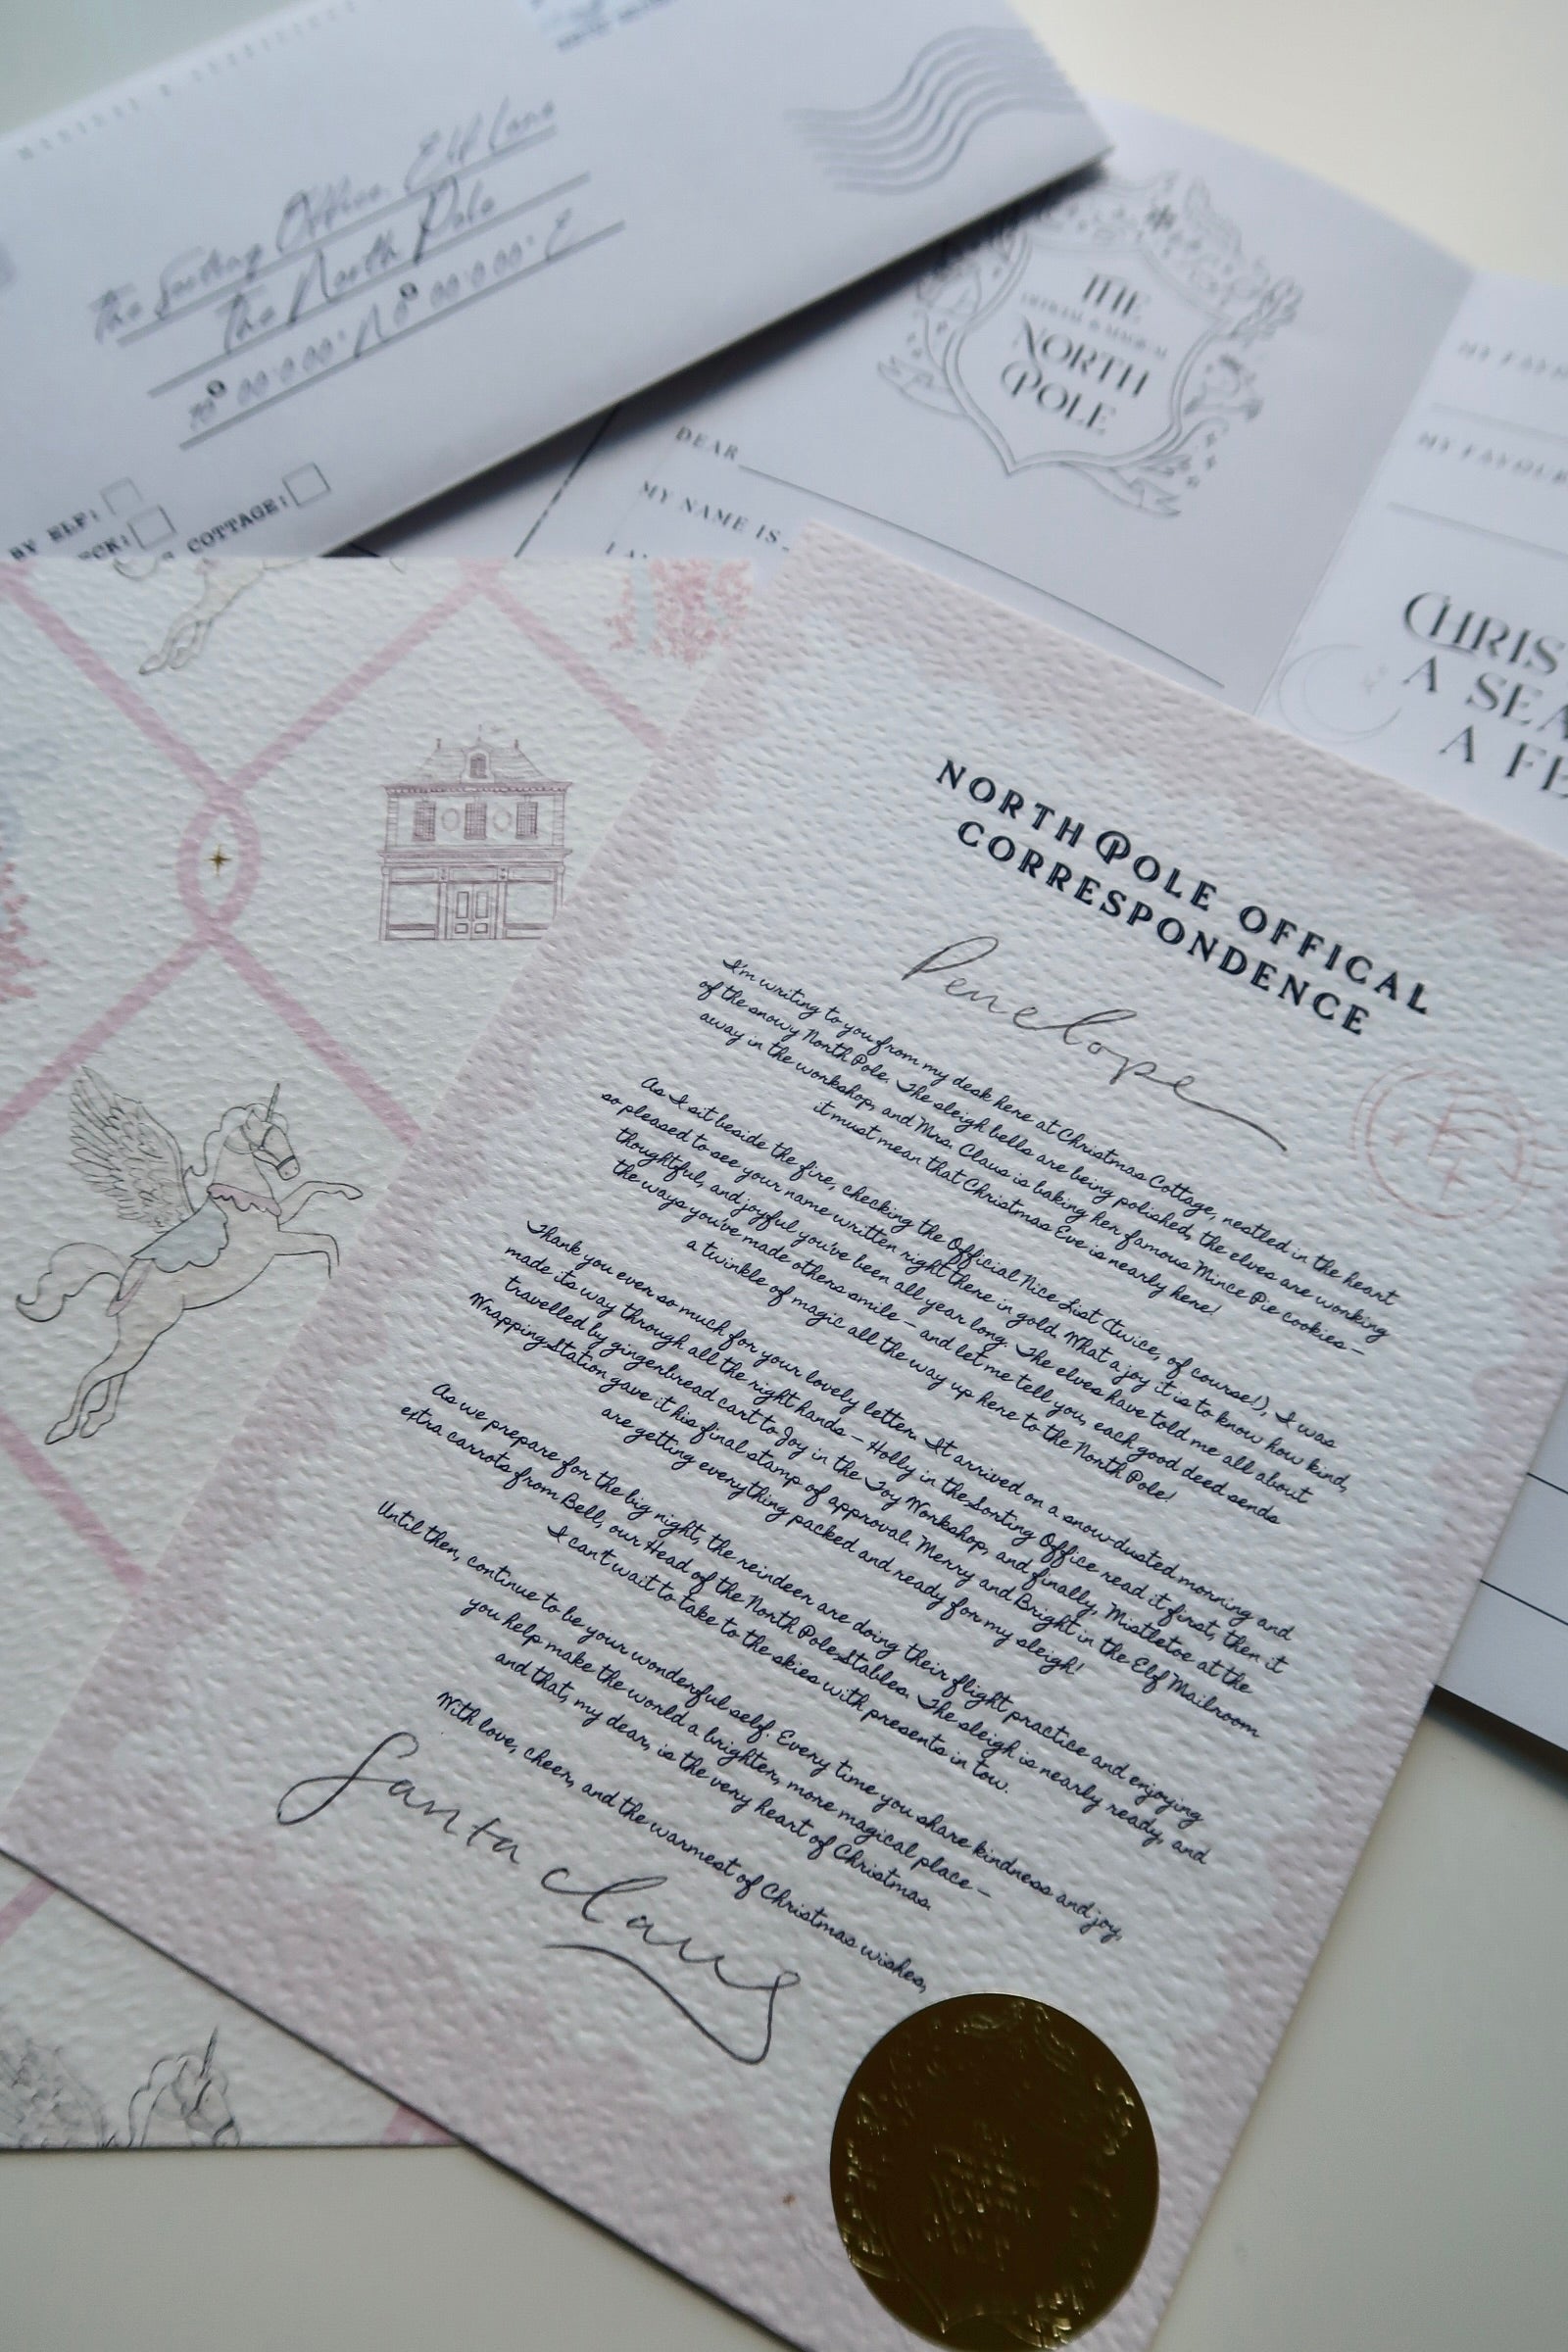 The Sorting Office Elf Lane
The North Pole
BY ELF:
COTTAGE:
THE
NORTH
POLE
DEAR
MY NAME IS
MY FAVOU
CHRIS
A SEA
A FE
NORTH POLE OFFICAL
CORRESPONDENCE
Penelope
I'm writing to you from my desk here at Christmas Cottage, nestled in the heart
of the snowy North Pole. The sleigh bells are being polished, the elves are working
away in the workshop, and Mrs. Claus is baking her famous Mince Pie cookies –
it must mean that Christmas Eve is nearly here!
As I sit beside the fire, checking the Official Nice List (twice, of course!), I was
so pleased to see your name written right there in gold. What a joy it is to know how kind,
thoughtful, and joyful you've been all year long. The elves have told me all about
the ways you've made others smile – and let me tell you, each good deed sends
a twinkle of magic all the way up here to the North Pole!
Thank you ever so much for your lovely letter. It arrived on a snow-dusted morning and
made its way through all the right hands – Holly in the Sorting Office read it first, then it
travelled by gingerbread cart to Joy in the Toy Workshop, and finally, Mistletoe at the
Wrapping Station gave it his final stamp of approval. Merry and Bright in the Elf Mailroom
are getting everything packed and ready for my sleigh!
As we prepare for the big night, the reindeer are doing their flight practice and enjoying
extra carrots from Bell, our Head of the North Pole Stables. The sleigh is nearly ready, and
I can't wait to take to the skies with presents in tow.
Until then, continue to be your wonderful self. Every time you share kindness and joy,
you help make the world a brighter, more magical place –
and that, my dear, is the very heart of Christmas.
With love, cheer, and the warmest of Christmas wishes,
Santa Claus